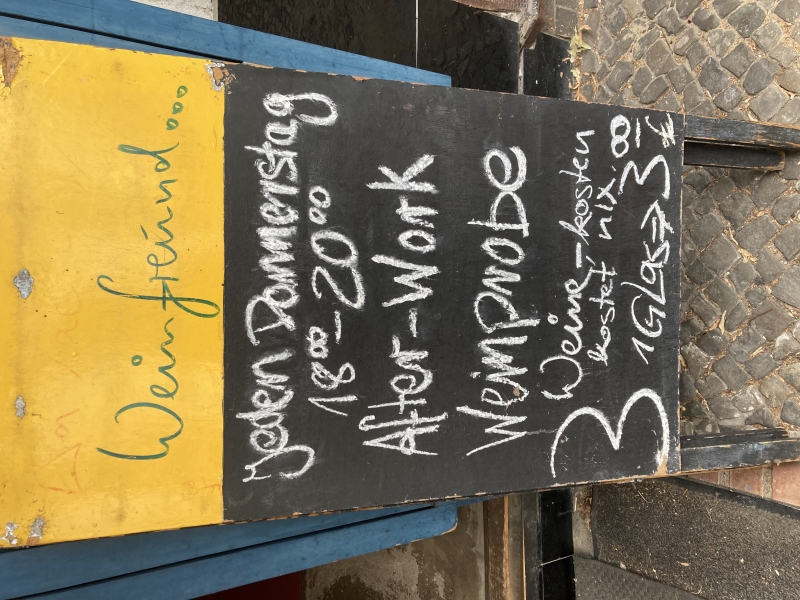 Weinfreund...
Jeden Donnerstag
18⁰⁰-20⁰⁰
After-Work
Weinprobe
3 Weine-kosten
kostet nix.
1 Glas => 3,00 €